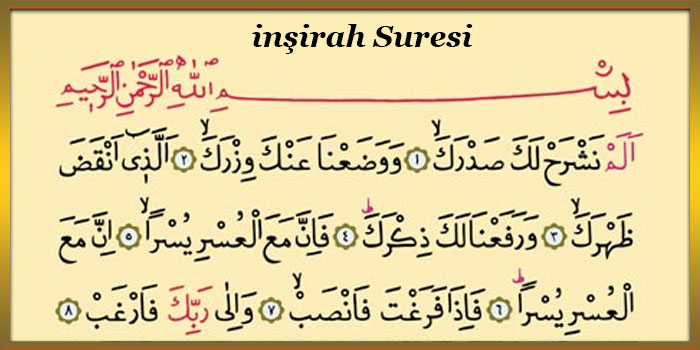 inşirah Suresi
بِسْمِ اللّٰهِ الرَّحْمٰنِ الرَّح۪يمِ
اَلَمْ نَشْرَحْ لَكَ صَدْرَكَۙ ﴿١﴾ وَوَضَعْنَا عَنْكَ وِزْرَكَۙ ﴿٢﴾ اَلَّذ۪ٓى اَنْقَضَ
ظَهْرَكَۙ ﴿٣﴾ وَرَفَعْنَا لَكَ ذِكْرَكَۜ ﴿٤﴾ فَاِنَّ مَعَ الْعُسْرِ يُسْراًۙ ﴿٥﴾ اِنَّ مَعَ
الْعُسْرِ يُسْراًۜ ﴿٦﴾ فَاِذَا فَرَغْتَ فَانْصَبْۙ ﴿٧﴾ وَاِلٰى رَبِّكَ فَارْغَبْ ﴿٨﴾